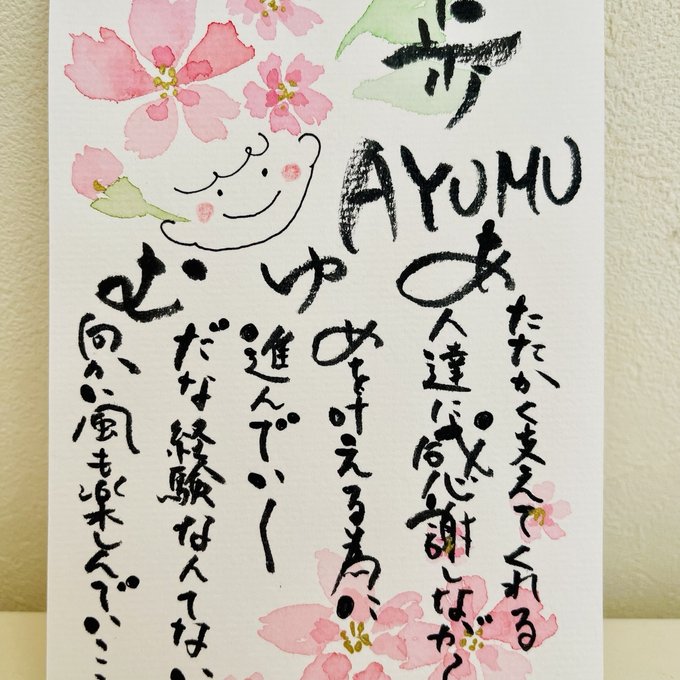 歩
AYUMU
あたたかく支えてくれる
人達に感謝しながら
ゆめを叶える為に
進んでいく
むだな経験なんてない
向かい風も楽しんでいこ